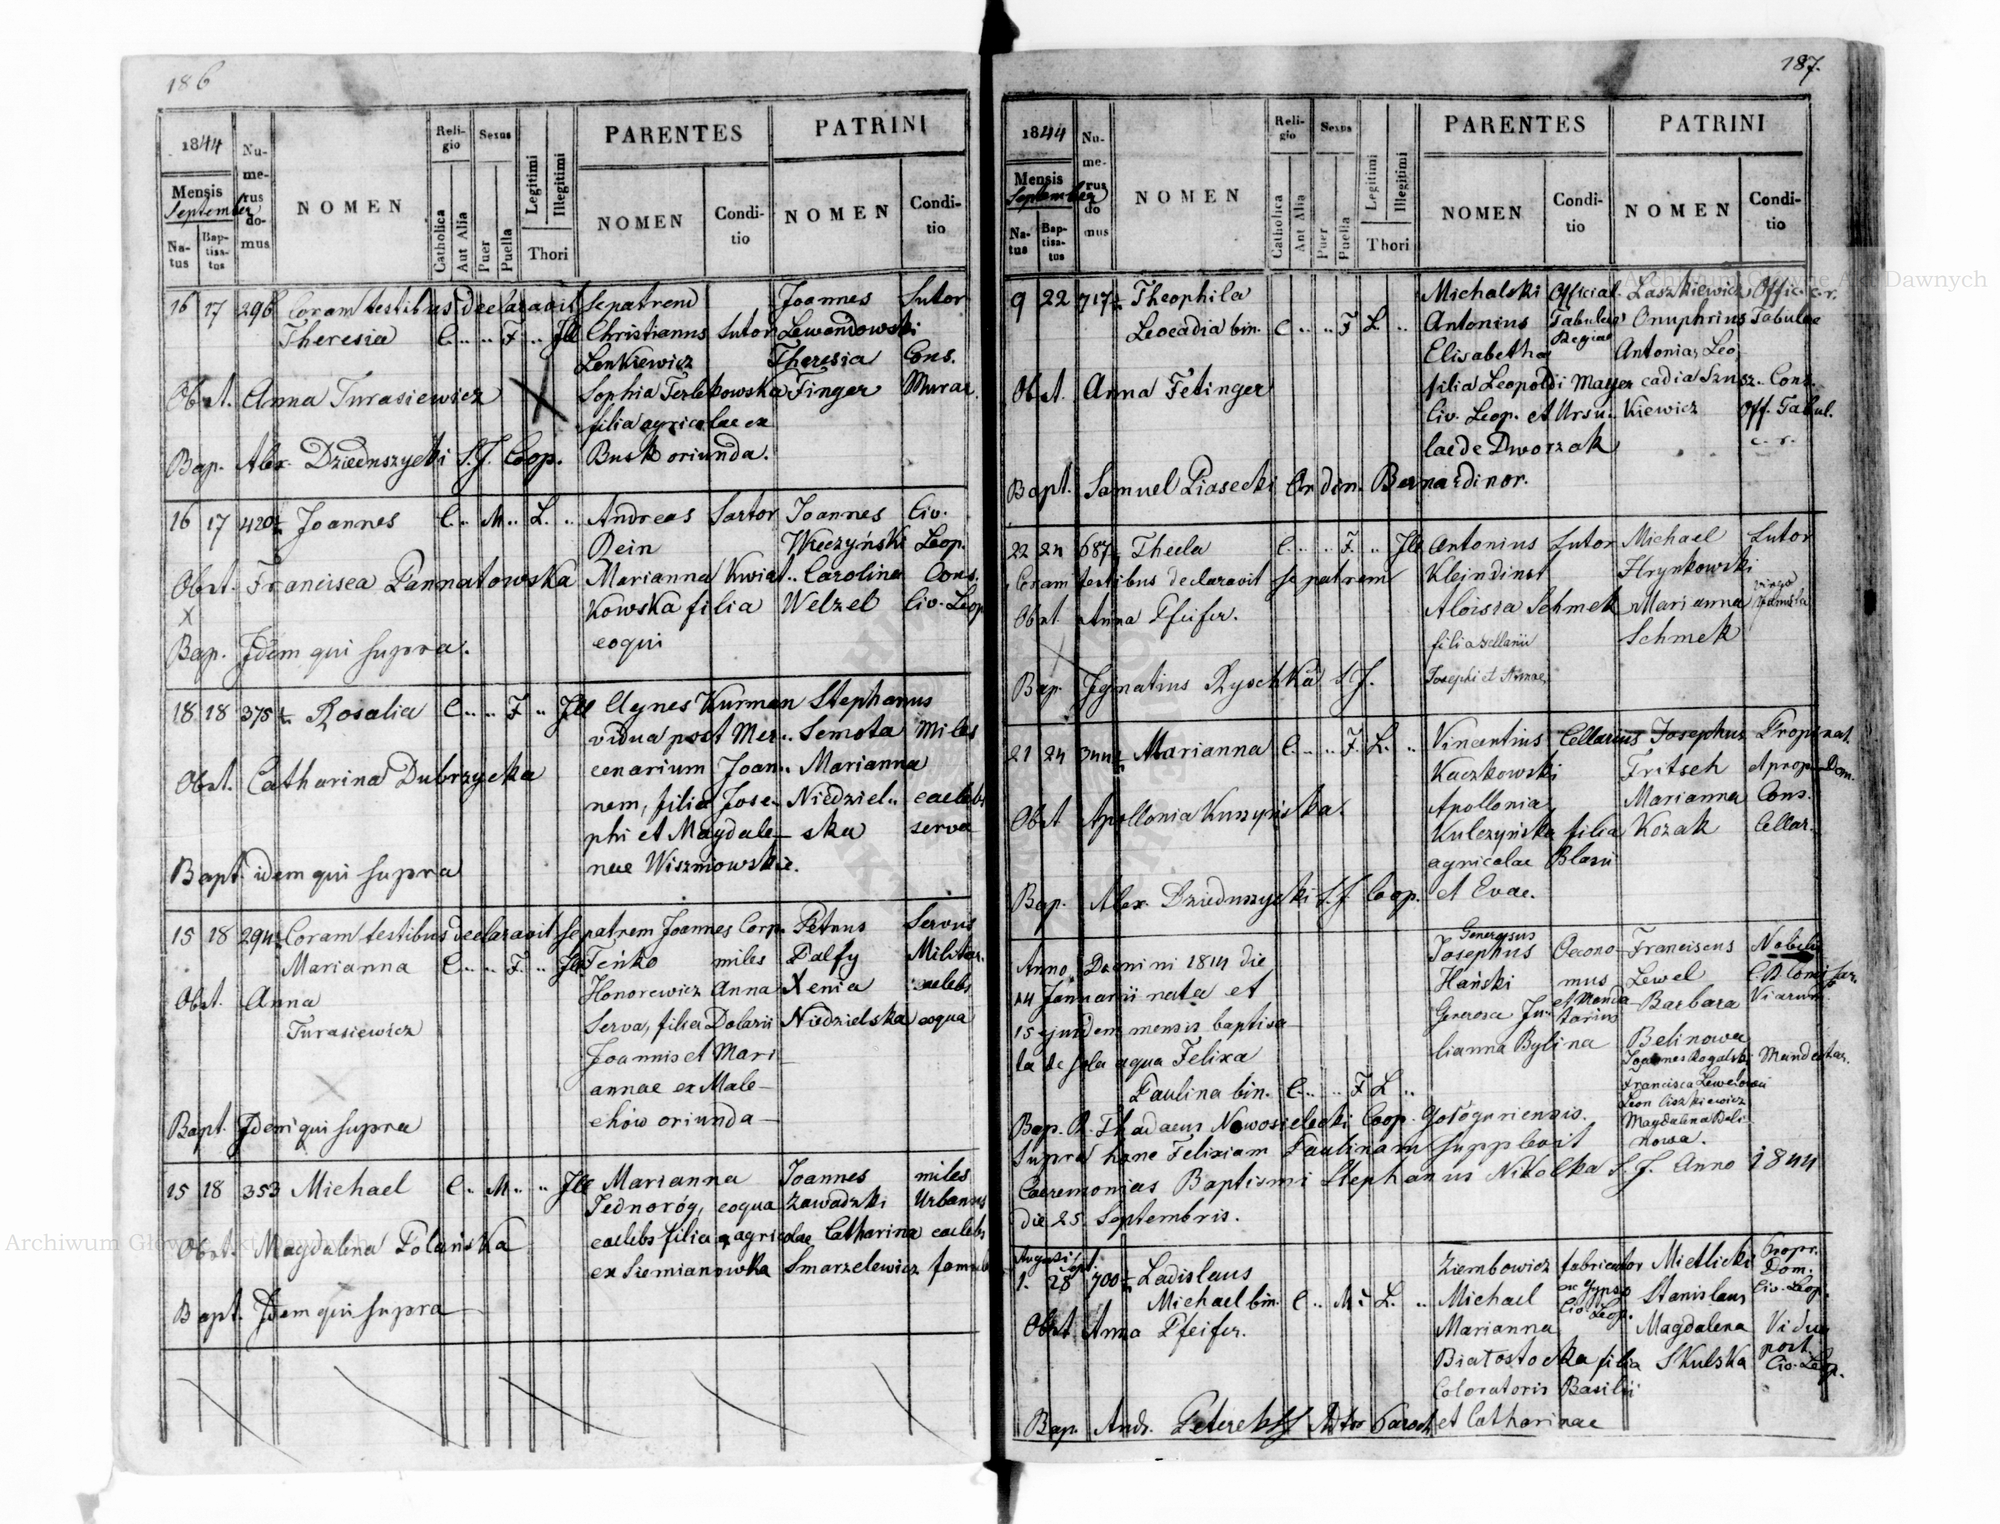 186
1844
Mensis
September
Natus
Baptisatus
Numerus domus
NOMEN
Religio
Catholica
Aut Alia
Sexus
Puer
Puella
Legitimi
Illegitimi
Thori
PARENTES
NOMEN
Conditio
PATRINI
NOMEN
Conditio
16 17 296 Coram testibus declaravit se patrem Joannes Sutor
Theresia C. .. .. F. .. Ill Christianus Sutor Lewandowski
Lenkiewicz Theresia Cons.
Obst. Anna Turasiewicz Sophia Terlekowska Finger Murar.
filia agricolae ex
Bap. Alex. Dzieduszycki S.J. Coop. Busk oriunda.
16 17 420 Joannes C. .. M. .. L. .. Andreas Sartor Joannes Civ.
Rein Leop.
Obst. Francisca Pannatowska Marianna Kwiat.. Carolina Cons.
kowska filia Welzel Civ. Leop
X
coqui
Bap. Idem qui supra.
18 18 375 Rosalia C. .. .. F. .. Ill Agnes Kurman Stephanus
vidua post Mer.. Semota Miles
Obst. Catharina Dubrzycka cenarium Joan.. Marianna
nem, filia Jose- Niedziel.. caelebs
phi et Magdale- ska serva
Bapt. idem qui supra nae Wiszniowskie.
15 18 294 Coram testibus declaravit se patrem Joannes Corp. Petrus Servus
Marianna C. .. .. F. .. Ill Teńko miles Palfy Militar.
Obst. Anna Honorewicz Anna Xenia caelebs
Turasiewicz Serva, filia Dolarii Niedzielska coqua
Joannis et Mari-
annae ex Male-
chów oriunda-
Bapt. Idem qui supra
15 18 353 Michael C. .. M. .. .. Ill Marianna Joannes miles
Jednoróg, coqua Zawadzki Urbanus
Obst. Magdalena Polańska caelebs filia agricolae Catharina caelebs
ex Siemianowka Smarzelewicz famula
Bapt. Idem qui supra
187.
1844
Mensis
September
Natus
Baptisatus
Numerus domus
NOMEN
Religio
Catholica
Aut Alia
Sexus
Puer
Puella
Legitimi
Illegitimi
Thori
PARENTES
NOMEN
Conditio
PATRINI
NOMEN
Conditio
9 22 717 Theophila Michalski Official. Laszkiewicz Offic. c.r.
Leocadia bin. C. .. .. F. L. .. Antonius Tabulae Onuphrius Tabulae
Elisabetha Regiae Antonia, Leo
Obst. Anna Fetinger filia Leopoldi Mayer cadia Szusz.. Cons.
Civ. Leop. et Ursu.. kiewicz Off. Tabul.
lae de Dworzak c. r.
Bapt. Samuel Piasecki Ordin. Bernardinor.
22 24 687 Thecla C. .. .. F. .. Ill Antonius Sutor Michael Sutor
Coram testibus declaravit se patrem Klejndinst Hrynkowski
Obst. Anna Pfeifer. Aloisia Schmek Marianna virgo famula
filia Schmek
Bap. Ignatius Ryschka S.J. Josephi et Annae
21 24 344 Marianna C. .. .. F. L. .. Vincentius Cellarius Josephus Propinat.
Kaczkowski Fritsch et propr. Dom.
Obst Apollonia Kuszynska. Apollonia Marianna Cons.
Kulczyńska filia Kozak Cellar.
agricolae Blasii
Bap. Alex. Dzieduszycki S.J. Coop. et Evae.
Generosus
Anno Domini 1814 die Josephus Oecono- Franciscus Nobilis
24 Januarii nata et Hański mus Lewel
et Manda
15 ejusdem mensis baptisa- Generosa Ju- tarius Barbara Viarum
ta de sola aqua Felixa lianna Bylina Belinowa
Joannes Rogalski Mandatar.
Paulina bin. C. .. .. F. L. .. Francisca Lewelowa
Leon Ciszkiewicz
Bap. R. Thadaeus Nowosielecki Coop. Gołogoriensis. Magdalena Beli-
nowa.
Supra hanc Felixiam Paulinam supplevit
Caeremonias Baptismi Stephanus Nikolka S.J. Anno 1844
die 25 Septembris.
Augusti Sept.
1. 28 700 Ladislaus Ziembowicz fabricator Mietlicki Propr. Dom.
Michael bin. C. .. M. .. L. .. Michael ex gypso Stanislaus Civ. Leop.
Civ. Leop.
Obst Anna Pfeifer. Marianna Magdalena Vidua
Białostocka filia Skulska post Civ. Leop.
Coloratoris Basilii
Bap. Andr. Paroch et Catharinae
Archiwum Główne Akt Dawnych
Archiwum Główne Akt Dawnych